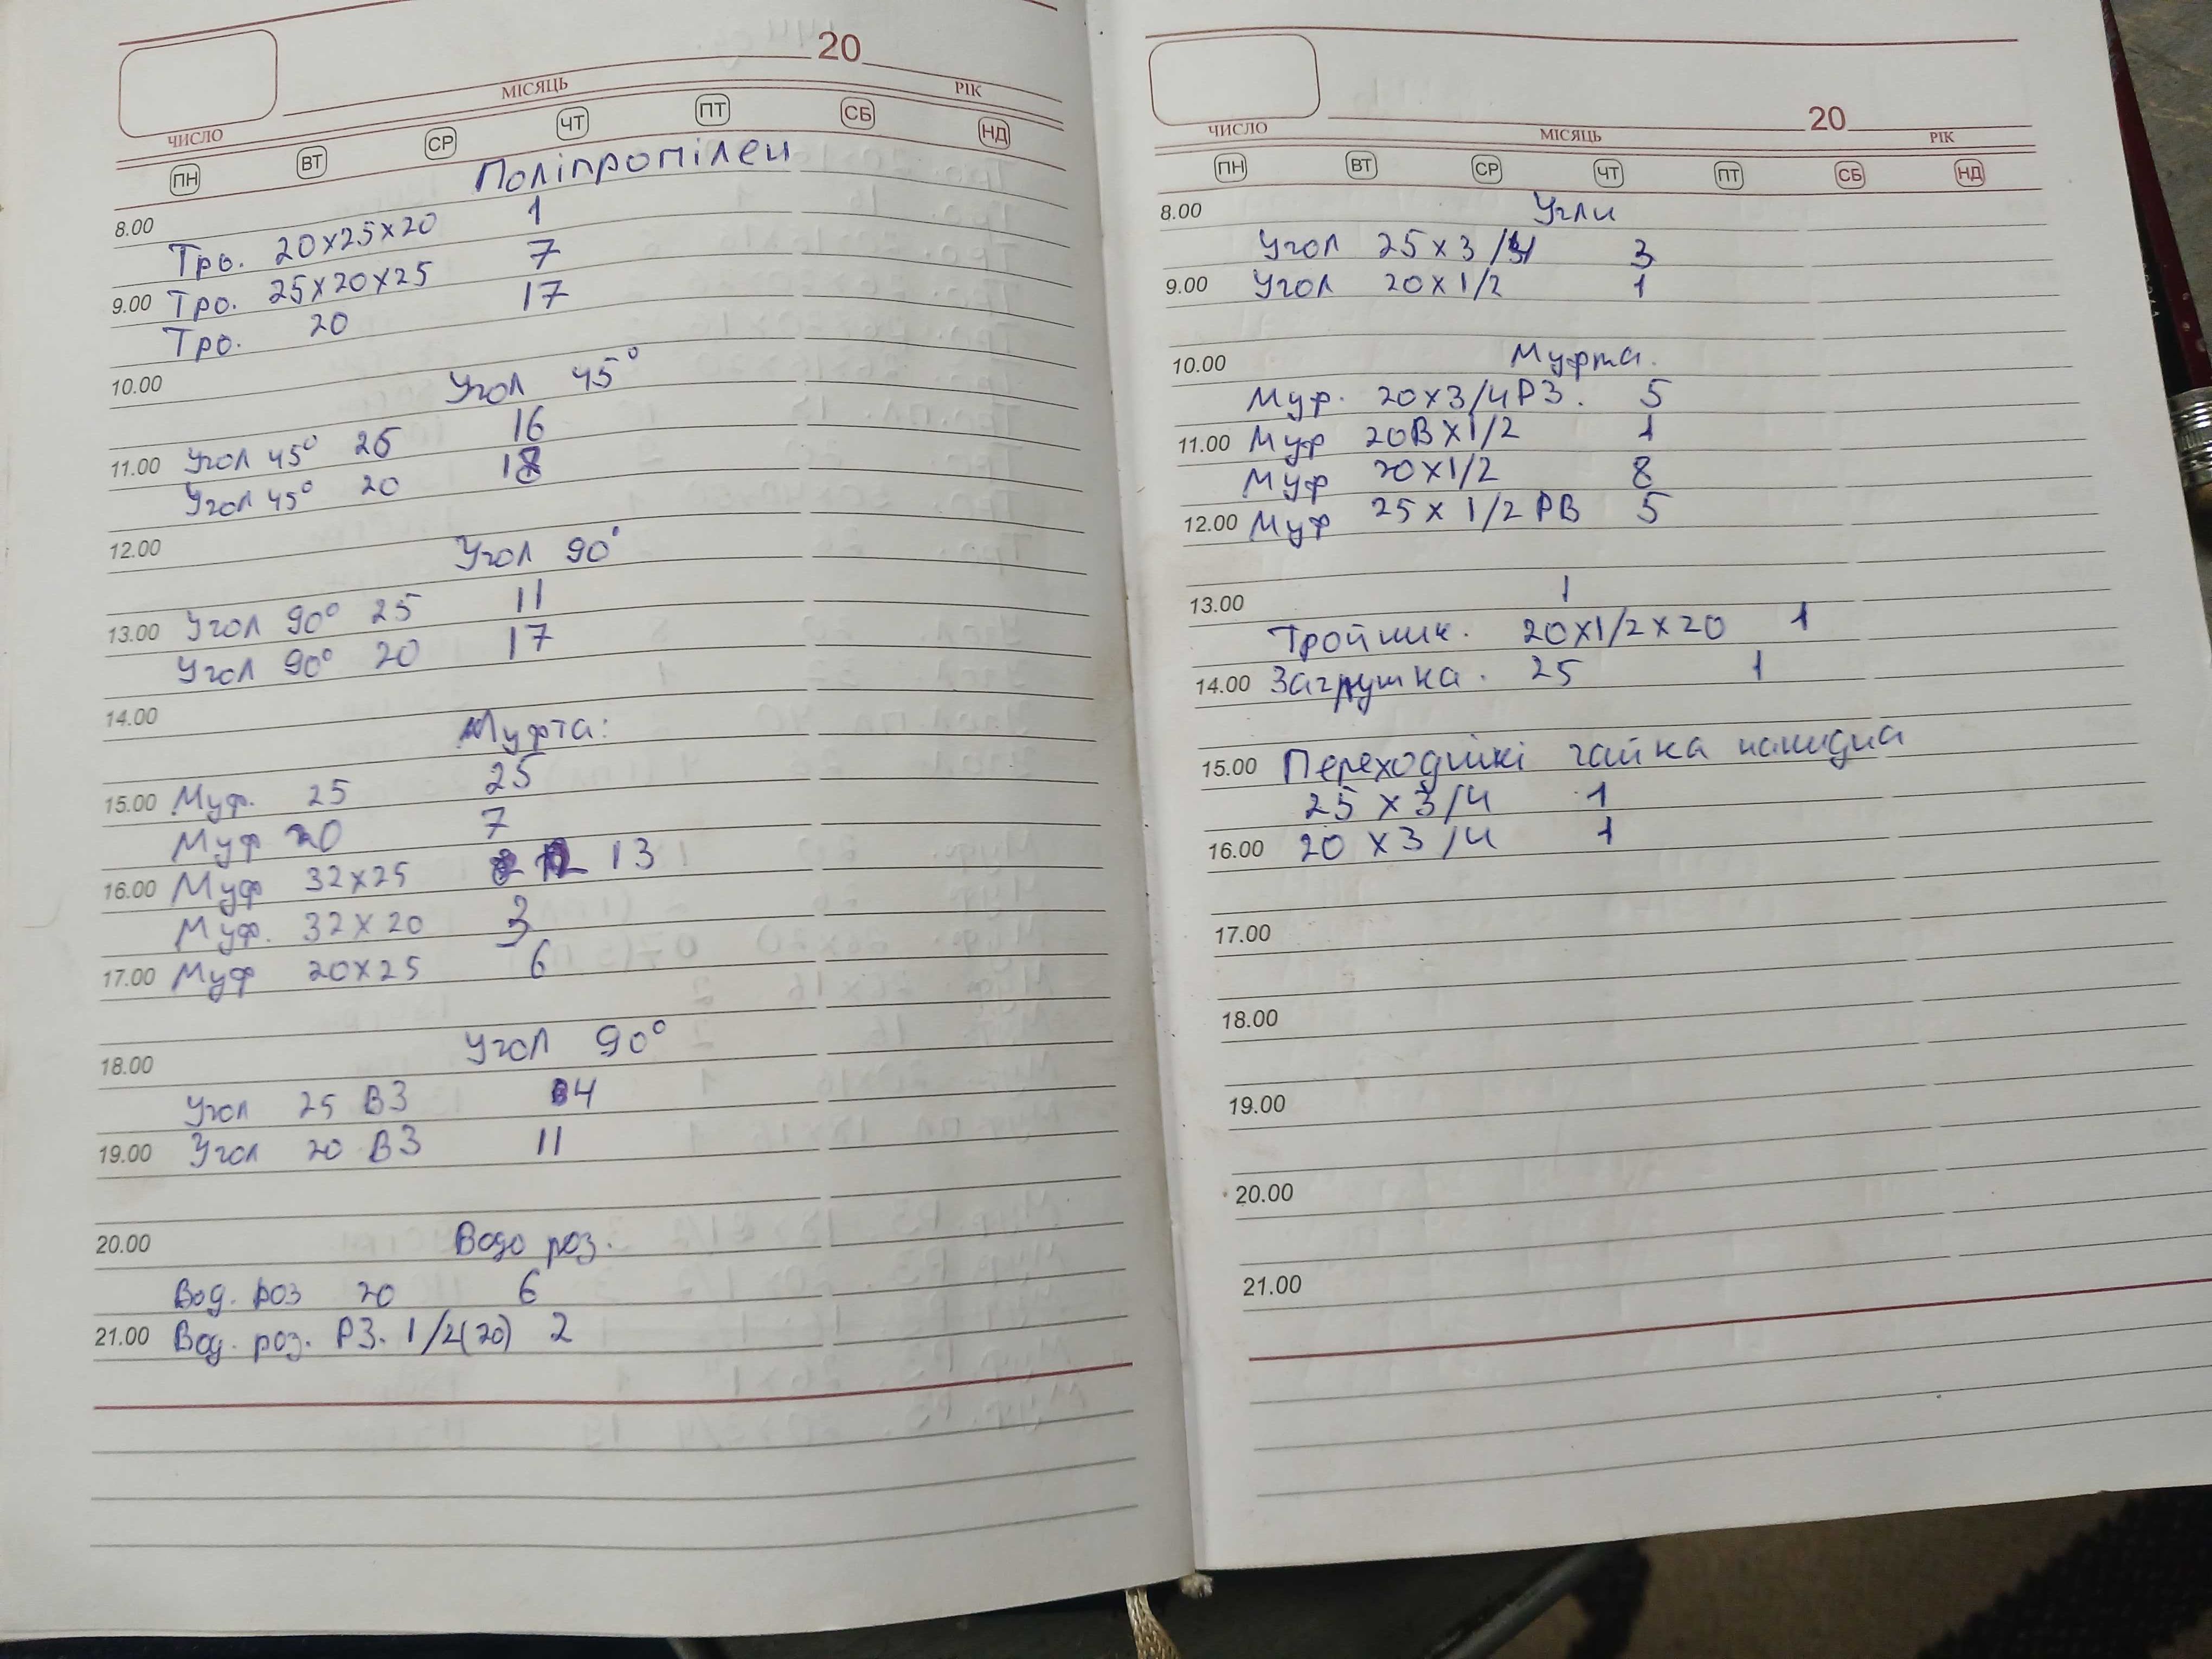 20
МІСЯЦЬ РІК
ЧИСЛО
ПН ВТ СР ЧТ ПТ СБ НД
Поліпропілен
8.00
Тро. 20x25x20 1
9.00 Тро. 25x20x25 7
Тро. 20 17
10.00
Угол 45°
11.00 Угол 45° 25 16
Угол 45° 20 18
12.00
Угол 90°
13.00 Угол 90° 25 11
Угол 90° 20 17
14.00
Муфта:
15.00 Муф. 25 25
Муф 20 7
16.00 Муф 32x25 13
Муф. 32x20 3
17.00 Муф 20x25 6
18.00
Угол 90°
Угол 25 ВЗ 4
19.00 Угол 20 ВЗ 11
20.00
Водо роз.
Вод. роз 20 6
21.00 Вод. роз. РЗ. 1/2(20) 2
20
ЧИСЛО МІСЯЦЬ РІК
ПН ВТ СР ЧТ ПТ СБ НД
8.00
Угли
Угол 25x3/4 3
9.00 Угол 20x1/2 1
10.00
Муфта.
Мур. 20x3/4РЗ. 5
11.00 Муф 20Вx1/2 1
Муф 20x1/2 8
12.00 Муф 25x1/2 РВ 5
13.00
1
Тройник. 20x1/2x20 1
14.00 Заглушка. 25 1
15.00 Переходнікі гайка накидна
25x3/4 1
16.00 20x3/4 1
17.00
18.00
19.00
20.00
21.00